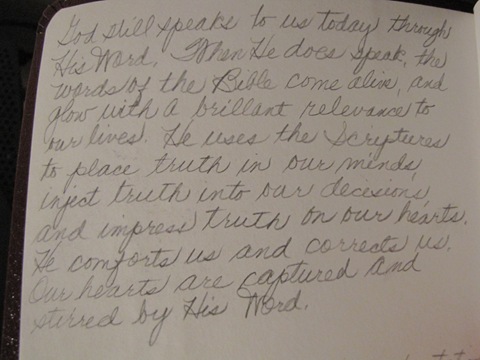 God still speaks to us today through
His Word. When He does speak, the
words of the Bible come alive, and
glow with a brillant relevance to
our lives. He uses the Scriptures
to place truth in our minds,
inject truth into our decisions,
and impress truth on our hearts.
He comforts us and corrects us.
Our hearts are captured and
stirred by His Word.